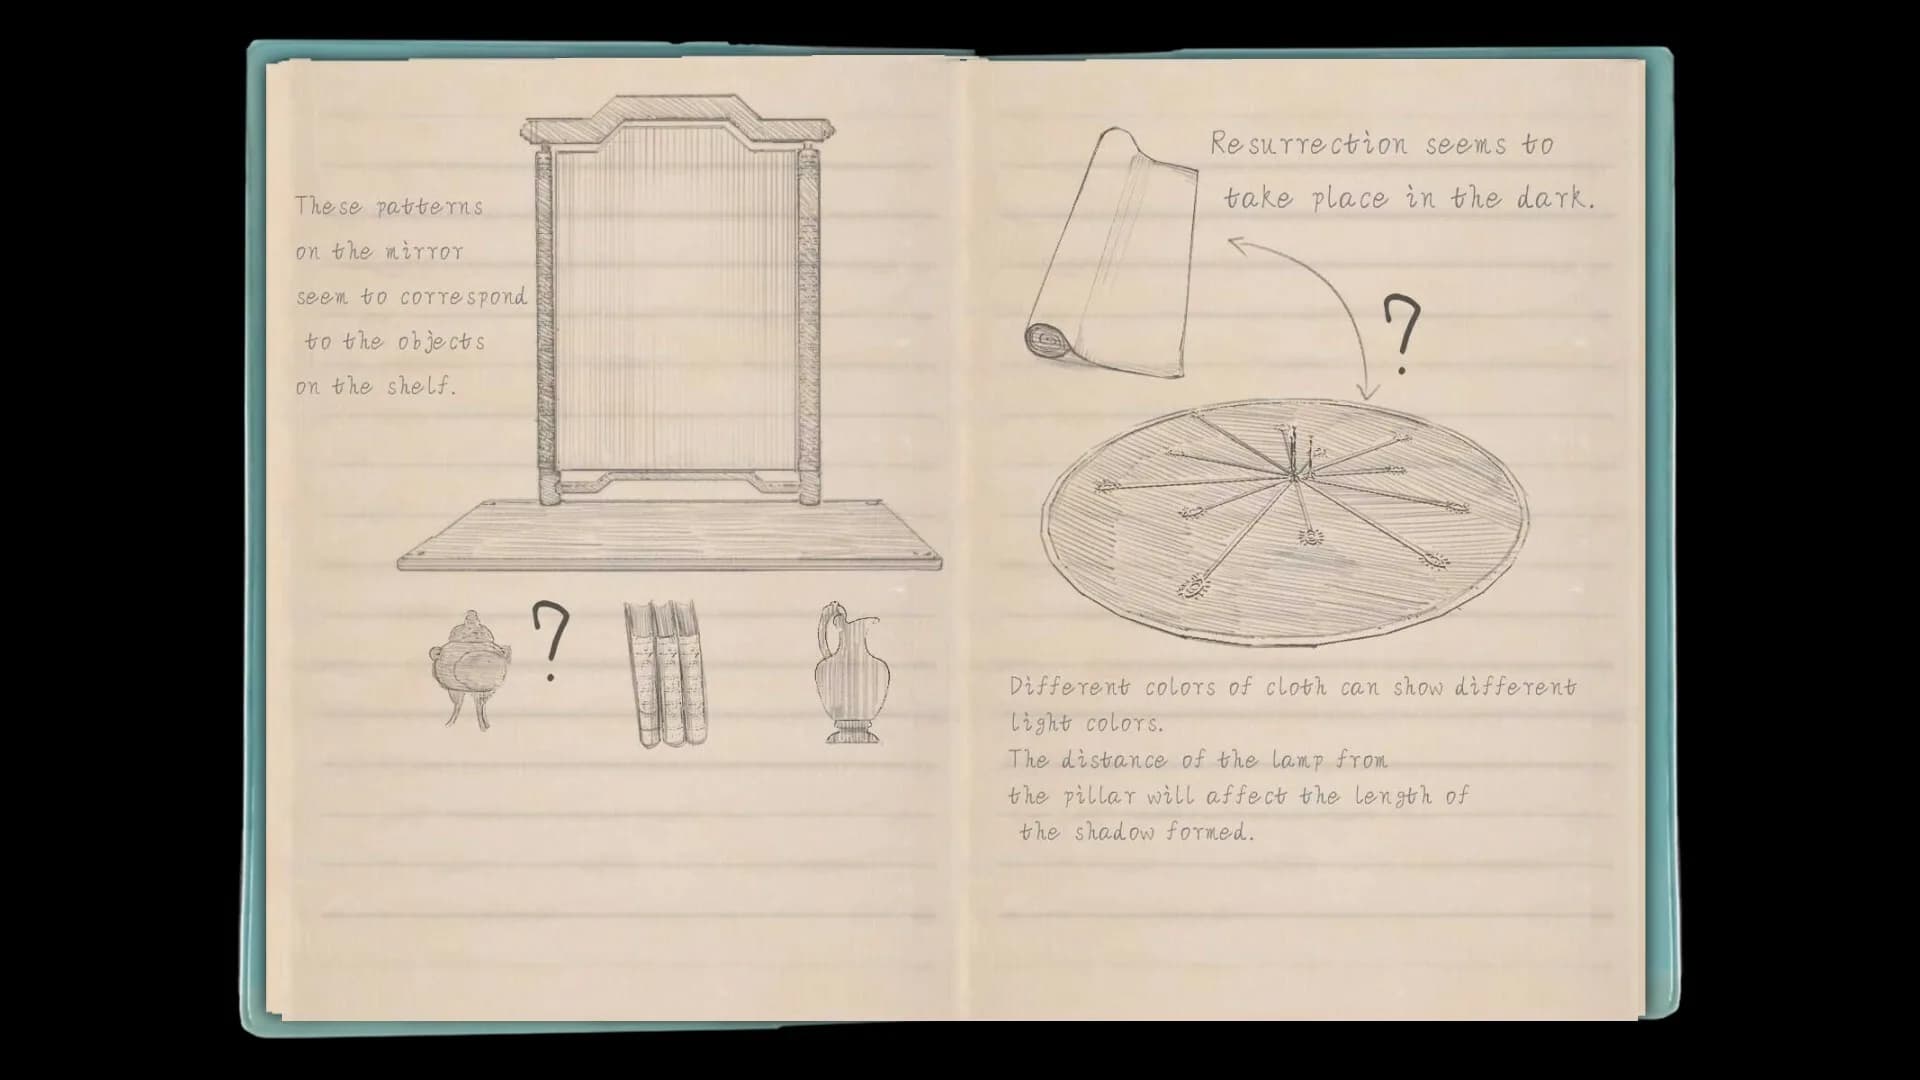 These patterns
on the mirror
seem to correspond
to the objects
on the shelf.
?
Resurrection seems to
take place in the dark.
?
Different colors of cloth can show different
light colors.
The distance of the lamp from
the pillar will affect the length of
the shadow formed.